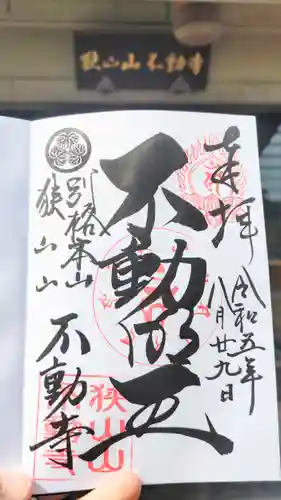 狭山山不動寺
奉拝
令和五年
八月廿九日
不動明王
別格本山
狭山山
不動寺
狭山山
不動寺